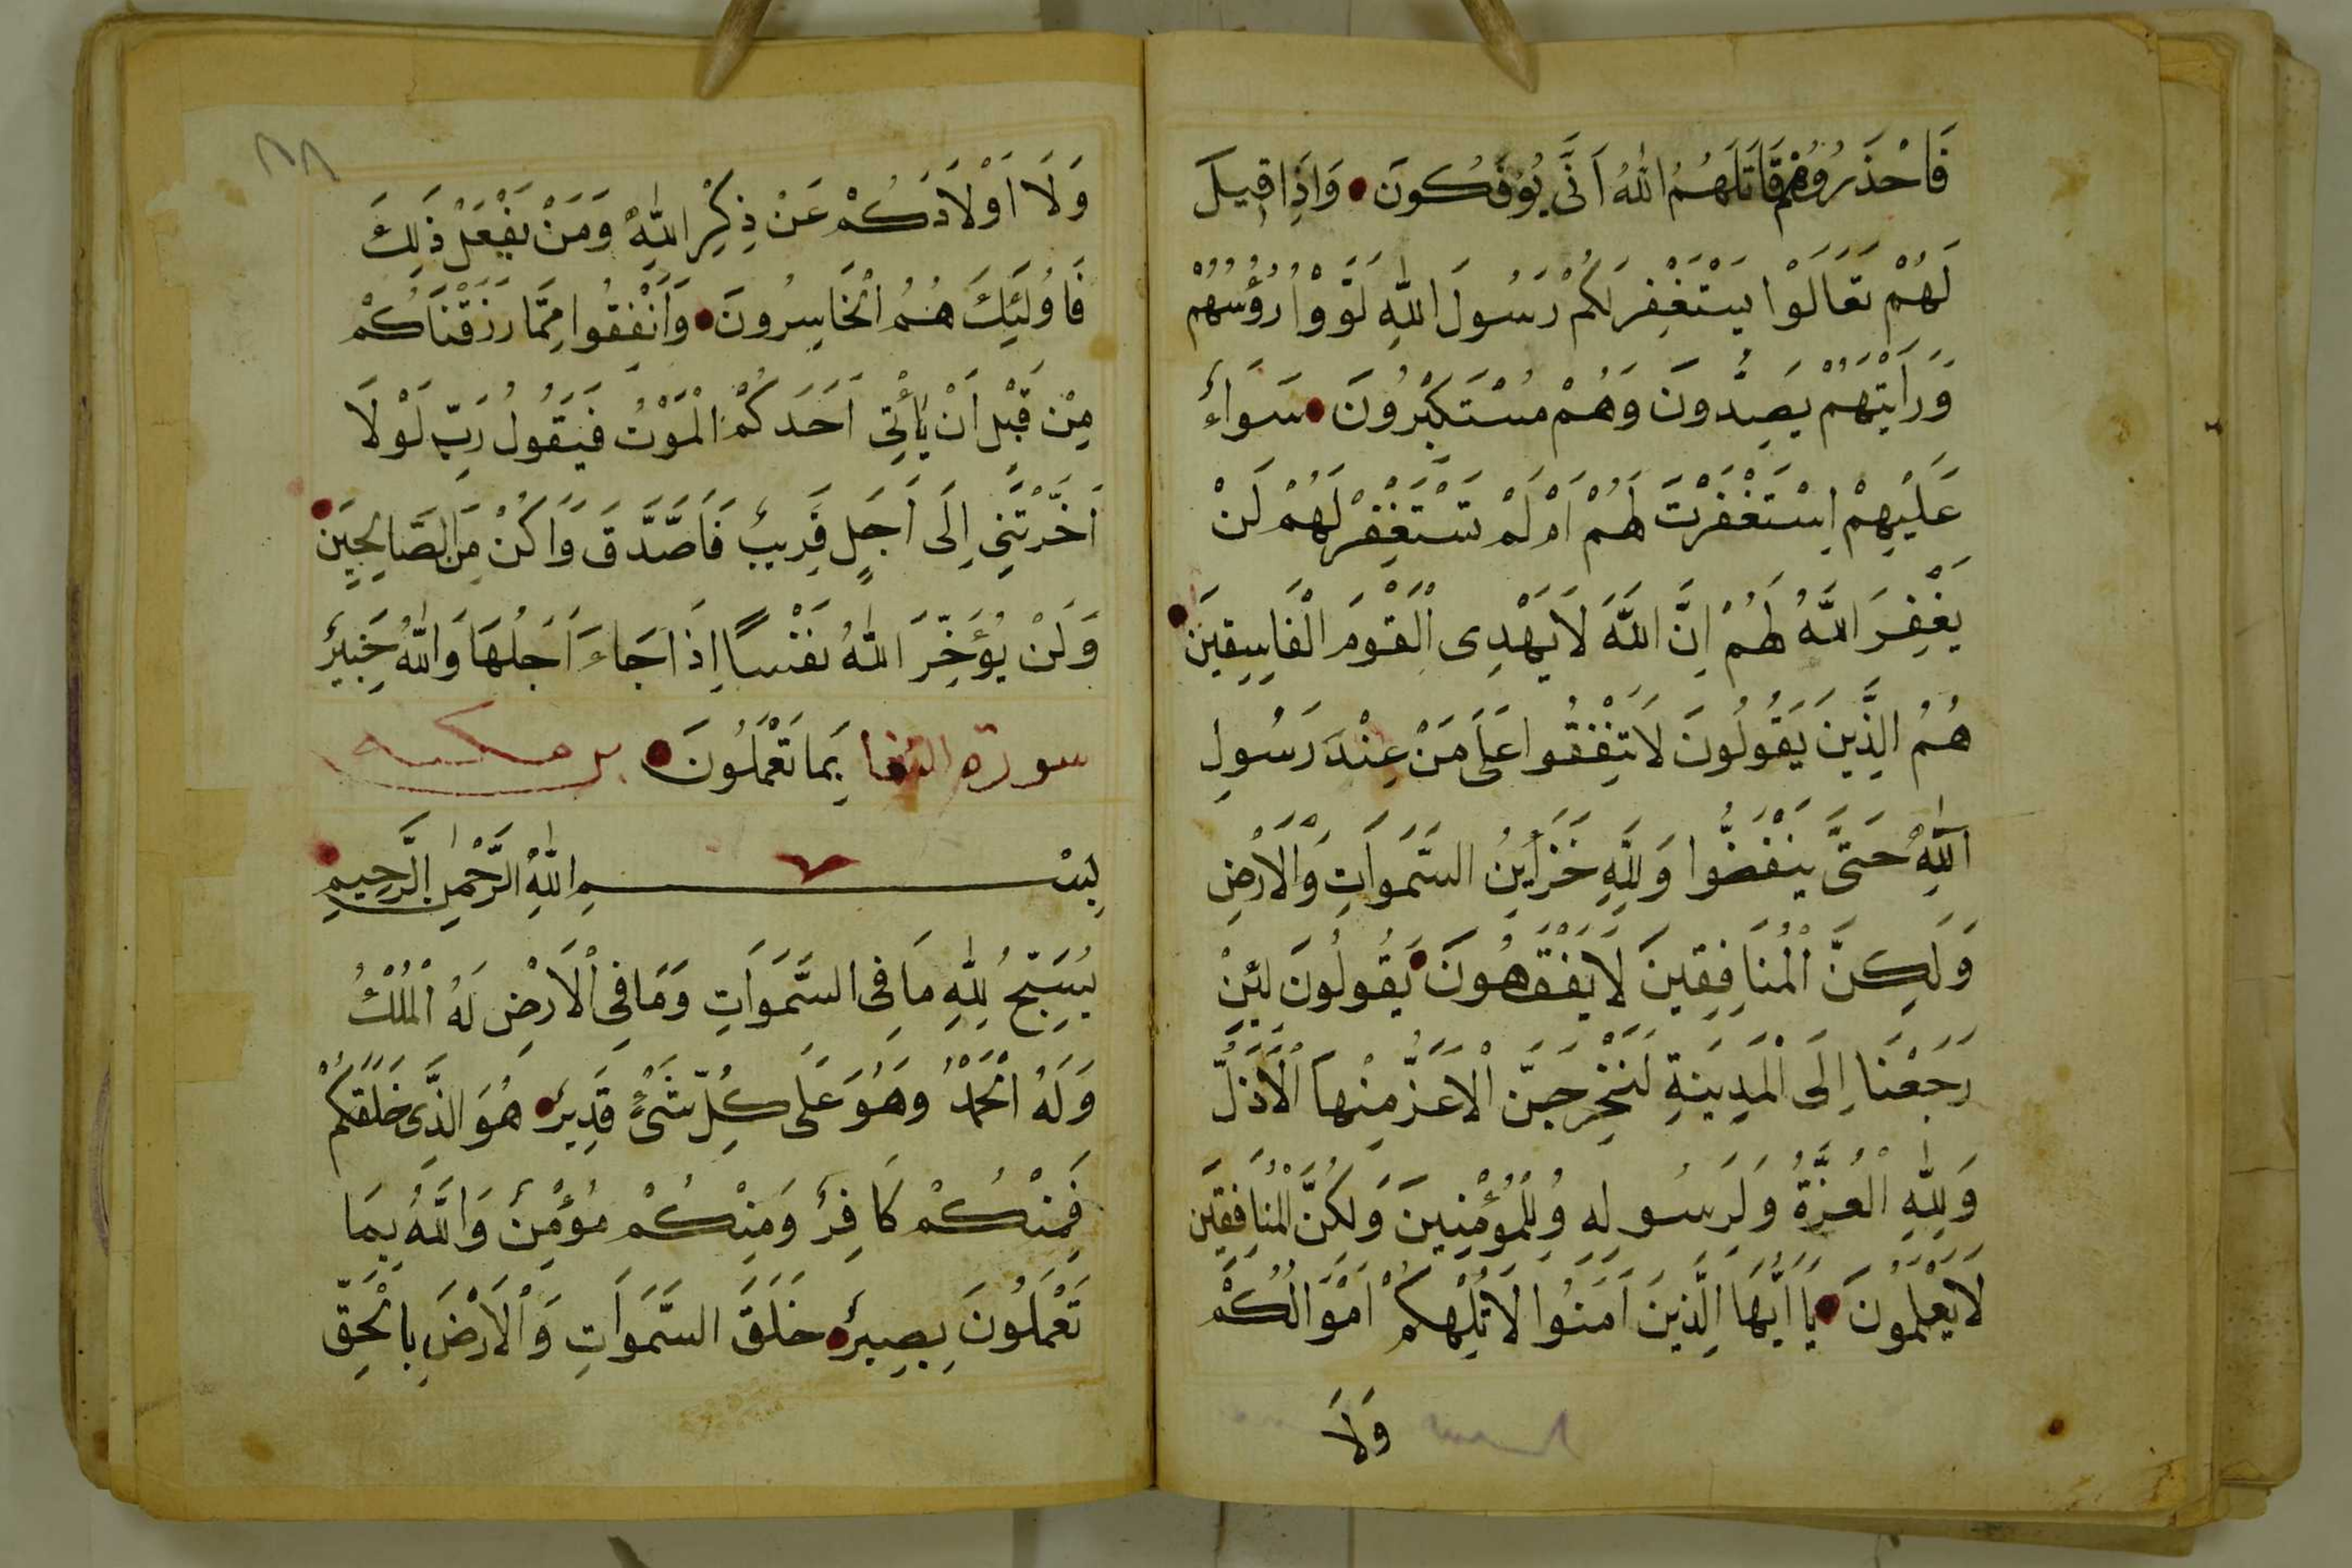 فَاحْذَرُوُهُمْ قَاتَلَهُمُ اللهُ اَنَّى يُؤْفَكُونَ وَاِذَا قِيلَ
لَهُمْ تَعَالَوْا يَسْتَغْفِرْ لَكُمْ رَسُولَ اللهِ لَوَّوْا رُؤُسَهُمْ
وَرَاَيْتَهُمْ يَصِدُّونَ وَهُمْ مُسْتَكْبِرُونَ سَوَاءٌ
عَلَيْهِمْ اِسْتَغْفَرْتَ لَهُمْ اَمْ لَمْ تَسْتَغْفِرْ لَهُمْ لَنْ
يَغْفِرَ اللَّهُ لَهُمْ اِنَّ اللَّهَ لَا يَهْدِى الْقَوْمَ الْفَاسِقِينَ
هُمُ الَّذِينَ يَقُولُونَ لَا تُنْفِقُوا عَلَى مَنْ عِنْدَ رَسُولِ
اللهِ حَتَّى يَنْفَضُّوا وَلِلَّهِ خَزَايِنُ السَّمَوَاتِ وَالْاَرْضِ
وَلَكِنَّ الْمُنَافِقِينَ لَا يَفْقَهُونَ يَقُولُونَ لَئِنْ
رَجَعْنَا اِلَى الْمَدِينَةِ لَنُخْرِجَنَّ الْاَعَزُّ مِنْهَا الْاَذَلَّ
وَلِلهِ الْعِزَّةُ وَلِرَسُولِهِ وَلِلْمُؤْمِنِينَ وَلَكِنَّ الْمُنَافِقِينَ
لَا يَعْلَمُونَ يَا اَيُّهَا الَّذِينَ اَمَنُوا لَا تُلْهِكُمْ اَمْوَالُكُمْ
وَلَا
٨٨
وَلَا اَوْلَادُكُمْ عَنْ ذِكْرِ اللهِ وَمَنْ يَفْعَلْ ذَلِكَ
فَاُولَئِكَ هُمُ الْخَاسِرُونَ وَاَنْفِقُوا مِمَّا رَزَقْنَاكُمْ
مِنْ قَبْلِ اَنْ يَأْتِى اَحَدَكُمْ الْمَوْتُ فَيَقُولُ رَبِّ لَوْلَا
اَخَّرْتَنِى اِلَى اَجَلٍ قَرِيبٍ فَاَصَّدَّقَ وَاَكُنْ مِنَ الصَّالِحِينَ
وَلَنْ يُؤَخِّرَ اللهُ نَفْسًا اِذَا جَاءَ اَجَلُهَا وَاللهُ خَبِيرٌ
سورة التغا بِمَا تَعْمَلُونَ بن مكيه
بِسْمِ اللهِ الرَّحْمٰنِ الرَّحِيمِ
يُسَبِّحُ لِلهِ مَا فِى السَّمَوَاتِ وَمَا فِى الْاَرْضِ لَهُ الْمُلْكُ
وَلَهُ الْحَمْدُ وَهُوَ عَلَى كُلِّ شَىْءٍ قَدِيرٌ هُوَ الَّذِى خَلَقَكُمْ
فَمِنْكُمْ كَافِرٌ وَمِنْكُمْ مُؤْمِنٌ وَاللَّهُ بِمَا
تَعْمَلُونَ بَصِيرٌ خَلَقَ السَّمَوَاتِ وَالْاَرْضَ بِالْحَقِّ